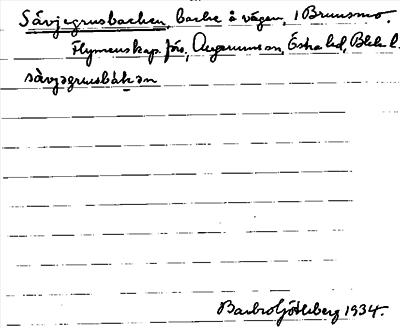 Sävjegrusbacken, backe å vägen, 1 Brunsmo.
Flymenskap. förs., Augerums sn, Östra hd, Blek. l.
sävjəgrusbàkən
Barbro Götleberg 1934.